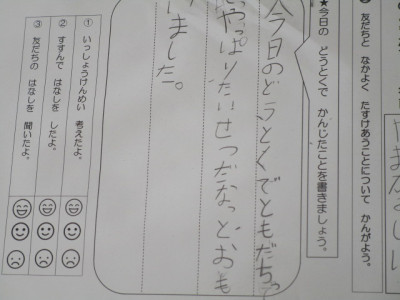 友だちと なかよく たすけあうことについて かんがえよう。
★今日の どうとくで かんじたことを書きましょう。
今日のどうとくでともだちっ
やっぱりたいせつだなっどおも
いました。
① いっしょうけんめい 考えたよ。
② すすんで はなしを したよ。
③ 友だちの はなしを 聞いたよ。